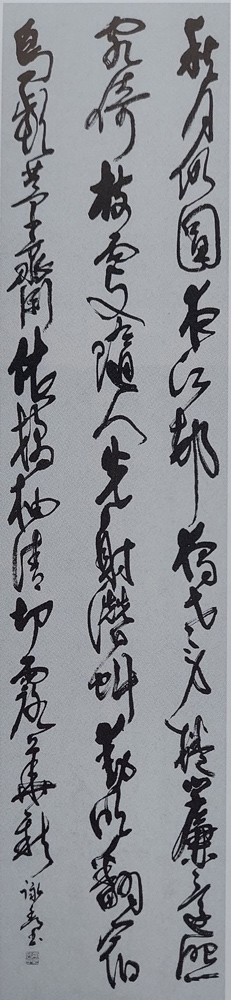 秋月仍圓夜江邨獨老身捲簾還照
客倚杖更隨人光射潛虯動明翻宿
鳥頻茅齋依橘柚清切露華新